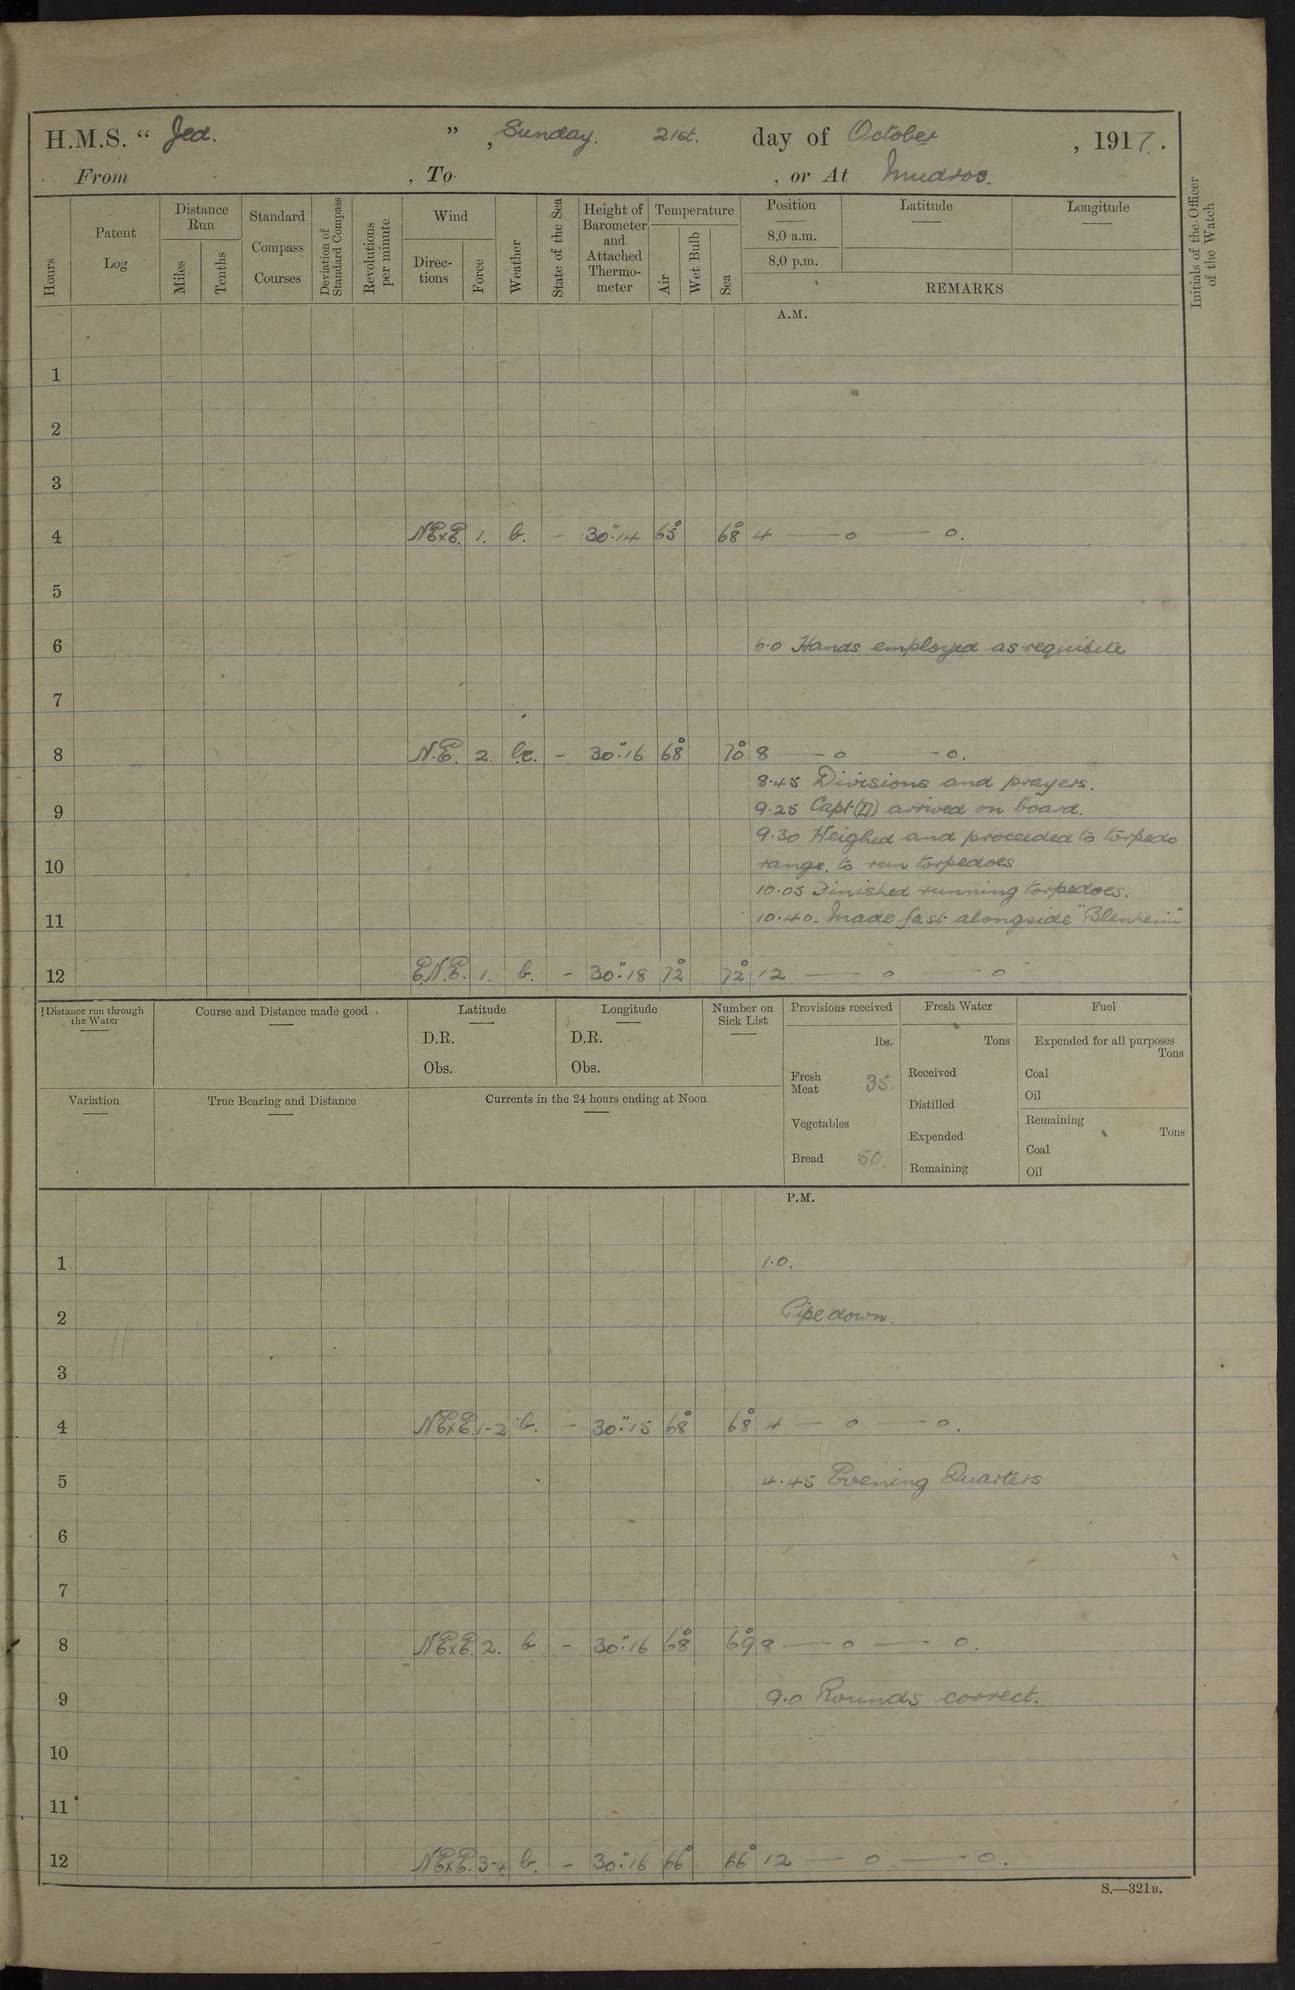 H.M.S. “ Jed. ” , Sunday. 21st. day of October , 1917.
From , To , or At Mudros.
Hours
Patent Log
Distance Run
Miles
Tenths
Standard Compass Courses
Deviation of Standard Compass
Revolutions per minute
Wind
Direc- tions
Force
Weather
State of the Sea
Height of Barometer and Attached Thermo- meter
Temperature
Air
Wet Bulb
Sea
Position
8.0 a.m.
8.0 p.m.
Latitude
Longitude
REMARKS
Initials of the Officer of the Watch
A.M.
1
2
3
4 NExE. 1. b. - 30".14 65° 68° 4 — o — o.
5
6 6.0 Hands employed as requisite
7
8 N.E. 2. bc. - 30".16 68° 70° 8 — o - o.
8.45 Divisions and prayers.
9 9.25 Capt. (D) arrived on board.
9.30 Weighed and proceeded to torpedo
10 range. to run torpedoes
10.05 Finished running torpedoes.
11 10.40. Made fast alongside "Blenheim"
12 E.N.E. 1. b. - 30".18 72° 72° 12 — o - o
Distance run through the Water
Course and Distance made good
Latitude
D.R.
Obs.
Longitude
D.R.
Obs.
Number on Sick List
Provisions received
lbs.
Fresh Meat 35.
Vegetables
Bread 50.
Fresh Water
Tons
Received
Distilled
Expended
Remaining
Fuel
Expended for all purposes
Tons
Coal
Oil
Remaining
Tons
Coal
Oil
Variation
True Bearing and Distance
Currents in the 24 hours ending at Noon
P.M.
1 1.0.
2 Pipe down.
3
4 NExE. 1-2 b. - 30".15 68° 68° 4 — o - o.
5 4.45 Evening Quarters
6
7
8 NExE. 2. b - 30".16 68° 69° 8 — o — o.
9 9.0 Rounds correct.
10
11
12 NExE. 3-4 b. - 30".16 66° 66° 12 — o — o.
S.—321B.